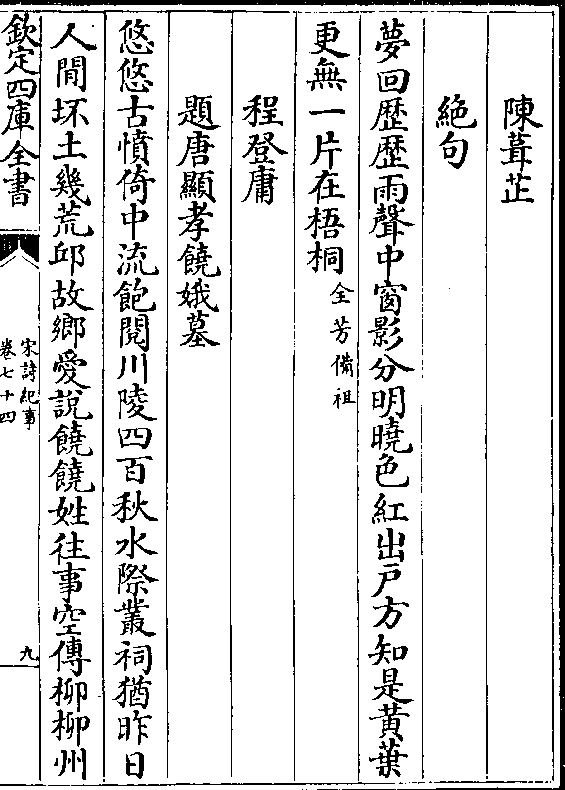 陳葺芷
絕句
夢回歷歷雨聲中窗影分明曉色紅出戸方知是黃葉
更無一片在梧桐全芳備祖
程登庸
題唐顯孝饒娥墓
悠悠古憤倚中流飽閱川陵四百秋水際叢祠猶昨日
人間坏土幾荒邱故鄉愛說饒饒姓往事空傳柳柳州
欽定四庫全書
宋詩紀事
卷七十四
九